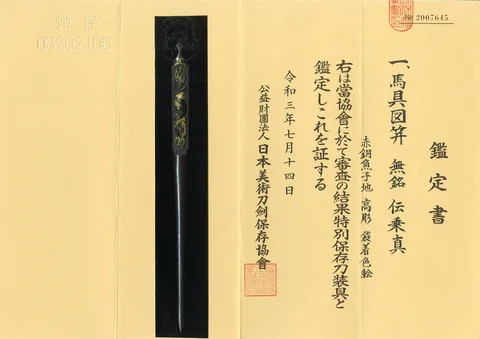 № 2007645
鑑定書
一、馬具図笄 無銘 伝乗真
赤銅魚子地 高彫 袋着色絵
右は當協會に於て審査の結果特別保存刀装具と
鑑定しこれを証する
令和三年七月十四日
公益財團法人 日本美術刀劍保存協會